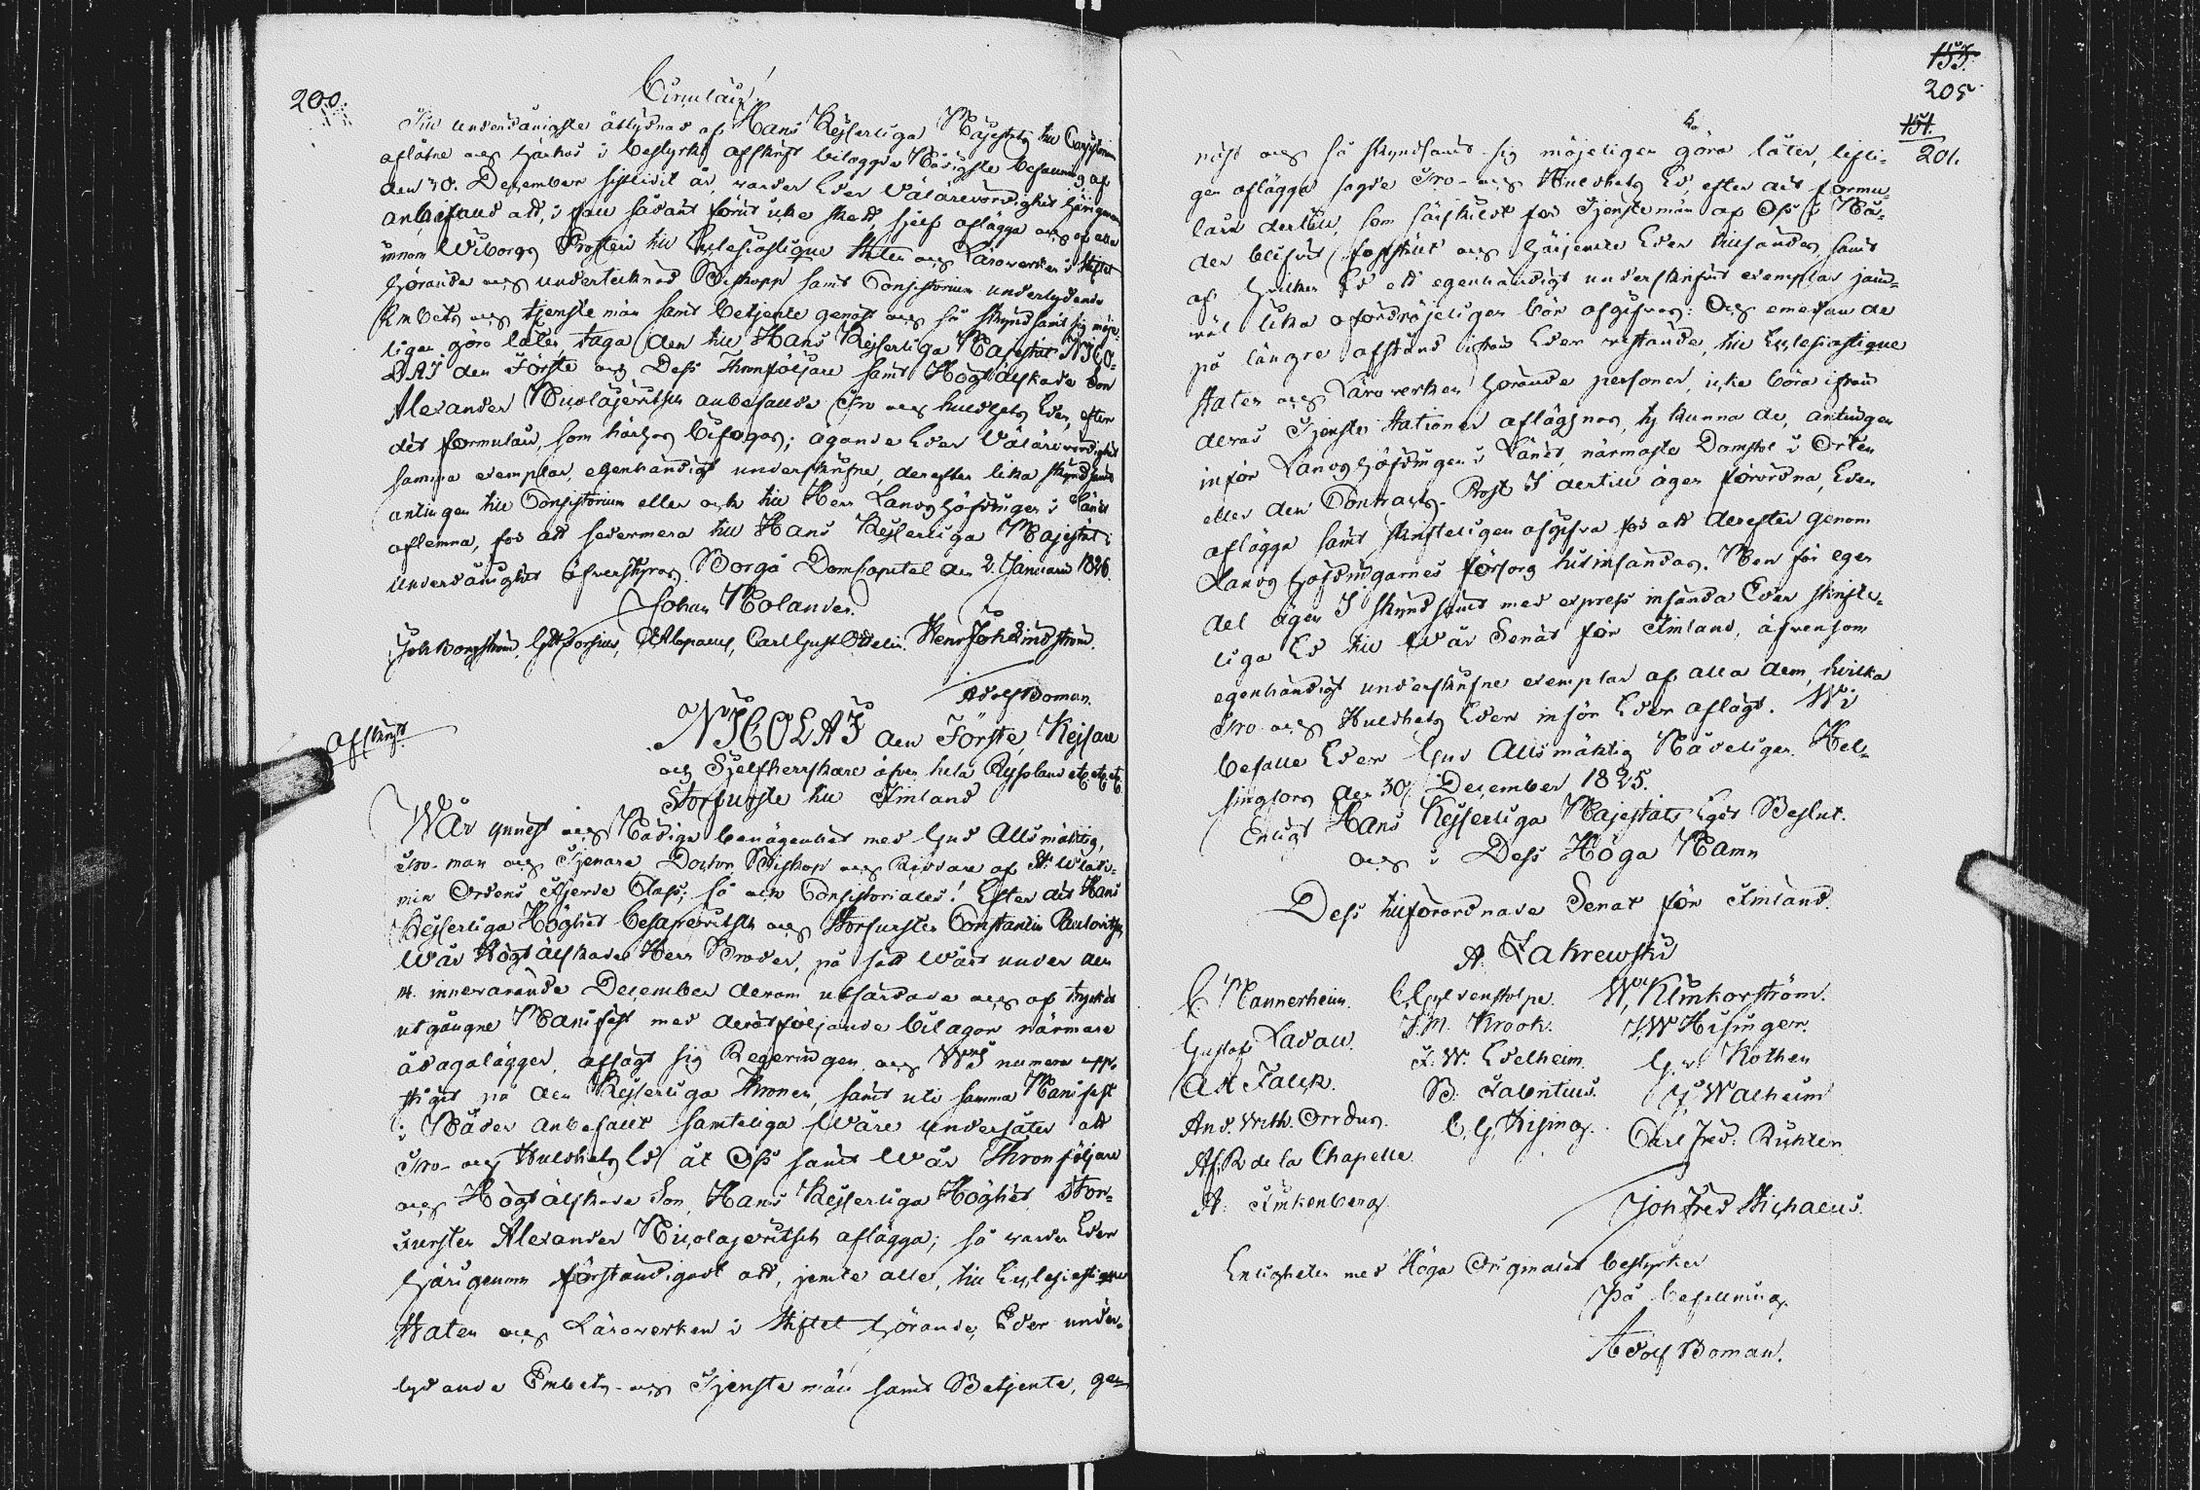 200.
Circulair!
Till underdånigste åtlydnad af Hans Kejserliga Majestäts till Consistorium
aflåtne och härhos i bestyrkt afskrift bilaggde Nådigste befallning af
den 30. December sistlidit år, warder Eder Wälärevördighet härigenom
anbefaldt att, i fall sådant förut icke skedt, sjelf aflägga och af alla
innom Wiborgs Prosteri till Ecclesiastique Staten och Läroverken i Stiftet
hörande och undertecknad Biskopp samt Consistorium underlydande
Embets och tjenstemän samt betjente genast och så skyndsamt sig möje-
ligen göra låter, taga den till Hans Kejserliga Majestät NICO-
LAI den Förste och Dess Thronföljare samt Högtälskade Son
Alexander Nicolajewitsch anbefallde Tro och huldhets Eden, efter
det formulair, som härhos bifogas; ägande Eder Wälärevördighet
samma exemplar, egenhändigt underskrifne, derefter lika skyndsamt
antingen till Consistorium eller ock till Herr Landshöfdingen i Länet
aflemna, för att sedermera till Hans Kejserliga Majestät i
underdånighet öfverstyras. Borgå DomCapitel den 2. Januarii 1826.
Johan Molander.
Joh Borgström, G Alopaeus, Carl Gust Ottelin. Henr Joh Lindström.
Adolf Boman.
Afskrift.
NICOLAI den Förste, Kejsare
och Sjelfherrskare öfver hela Ryssland etc. etc. etc.
Storfurste till Finland
Wår ynnest och Nådiga benägenhet med Gud Allsmäktig,
Tro-man och Tjenare Doctor, Biskop och Riddare af St. Wladi-
mirs Ordens fjerde Class; så ock Consistoriales! Efter det Hans
Kejserliga Höghet Cesarewitsch och Storfursten Constantin Paulovitsch
Wår Högtälskade Herr Broder, på sätt Wårt under den
14. innevarande December derom utfärdade och af trycket
utgångne Manifest med deråtföljande bilagor närmare
ådagalägger, afsagt sig Regeringen, och WI numera upp-
stigit på den Kejserliga Thronen, samt uti samma Manifest
i Nåder anbefallt samteliga Wåre undersåter att
Tro- och Huldhets Ed åt Oss samt Wår Thronföljare
och Högtälskade Son, Hans Kejserliga Höghet Stor-
Fursten Alexander Nicolajewitsch aflägga; så warder Eder
härigenom förständigadt att, jemte alle, till Ecclesiastique
Staten och Läroverken i Stiftet hörande, Eder under-
lydande Embets- och Tjenstemän samt Betjente, ge-
155.
205
151.
201.
nast och så skyndsamt sig möjeligen göra låter, lifli-
gen aflägga sagde Tro- och Huldhets Ed, efter det formu-
lair dertill, som särskildt för Tjenstemän af Oss i Nå-
der blifvit fastställt och härjemte Eder tillsändes, samt
af hvilken Ed ett egenhändigt underskrifvit exemplar jem-
wäl lika ofördröjeligen bör afgifvas: Och emedan de
på längre afstånd ifrån Eder vistande, till Ecclesiastique
Staten och Läroverken hörande personer, icke böra ifrån
deras Tjenste Stationer aflägsnas, ty kunna de, antingen
inför Landshöfdingen i Länet, närmaste Domstol i Orten
eller den Contracts-Prost I dertill ägen förordna, Eden
aflägga samt skrifteligen afgifva för att derefter genom
Landshöfdingarnes försorg hitinsändas. Men för egen
del ägen I skyndsamt med express insända Eder skrifte-
liga Ed till Wår Senat för Finland, äfvensom
egenhändigt underskrifne exemplar af alla dem, hvilka
Tro- och Huldhets Eden inför Eder aflagt. Wi
befalle Eder Gud Allsmäktig Nådeligen. Hel-
singfors den 30. December 1825.
Enligt Hans Kejserliga Majestäts Eget Beslut.
och i Dess Höga Namn
Dess tillförordnade Senat för Finland.
A. Zakrewski
C. Mannerheim. C. Gyldenstolpe. W. Klinkowström.
Gustaf Ladau. J. M. Krook. J. W Hisinger.
A H Falck. F. W. Edelheim. G. v Kothen
And. Wilh. Orrdus. B. Falentius. J Walheim
Af. R de la Chapelle C. G. Hising. Carl Fred: Richter
A. Finkenberg.
Joh Fred Stichaeus.
Enligheten med Höga Originalet bestyrker
På befallning.
Adolf Boman.